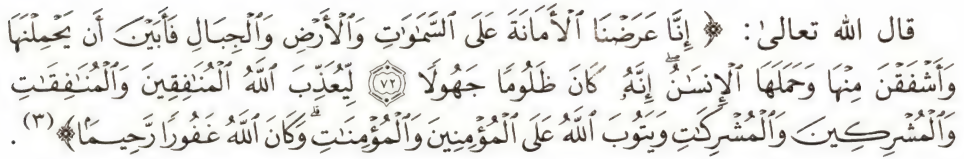 قال الله تعالىٰ: ﴿ إِنَّا عَرَضْنَا ٱلْأَمَانَةَ عَلَى ٱلسَّمَٰوَٰتِ وَٱلْأَرْضِ وَٱلْجِبَالِ فَأَبَيْنَ أَن يَحْمِلْنَهَا
وَأَشْفَقْنَ مِنْهَا وَحَمَلَهَا ٱلْإِنسَٰنُۖ إِنَّهُۥ كَانَ ظَلُومًا جَهُولًا ﴿٧٢﴾ لِّيُعَذِّبَ ٱللَّهُ ٱلْمُنَٰفِقِينَ وَٱلْمُنَٰفِقَٰتِ
وَٱلْمُشْرِكِينَ وَٱلْمُشْرِكَٰتِ وَيَتُوبَ ٱللَّهُ عَلَى ٱلْمُؤْمِنِينَ وَٱلْمُؤْمِنَٰتِۗ وَكَانَ ٱللَّهُ غَفُورًا رَّحِيمًا ﴾(٣) .